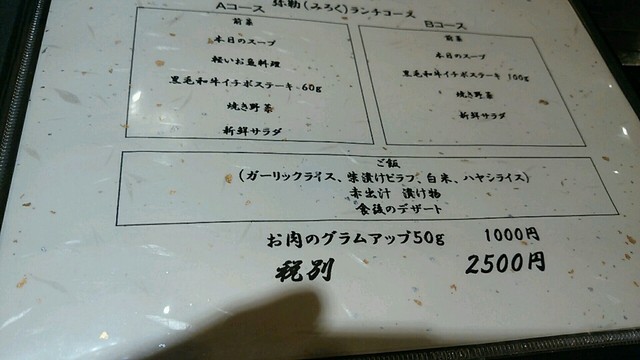 弥勒(みろく)ランチコース
Aコース
前菜
本日のスープ
軽いお魚料理
黒毛和牛イチボステーキ 60g
焼き野菜
新鮮サラダ
Bコース
前菜
本日のスープ
黒毛和牛イチボステーキ 100g
焼き野菜
新鮮サラダ
ご飯
(ガーリックライス、柴漬けピラフ、白米、ハヤシライス)
赤出汁 漬け物
食後のデザート
お肉のグラムアップ50g 1000円
税別 2500円